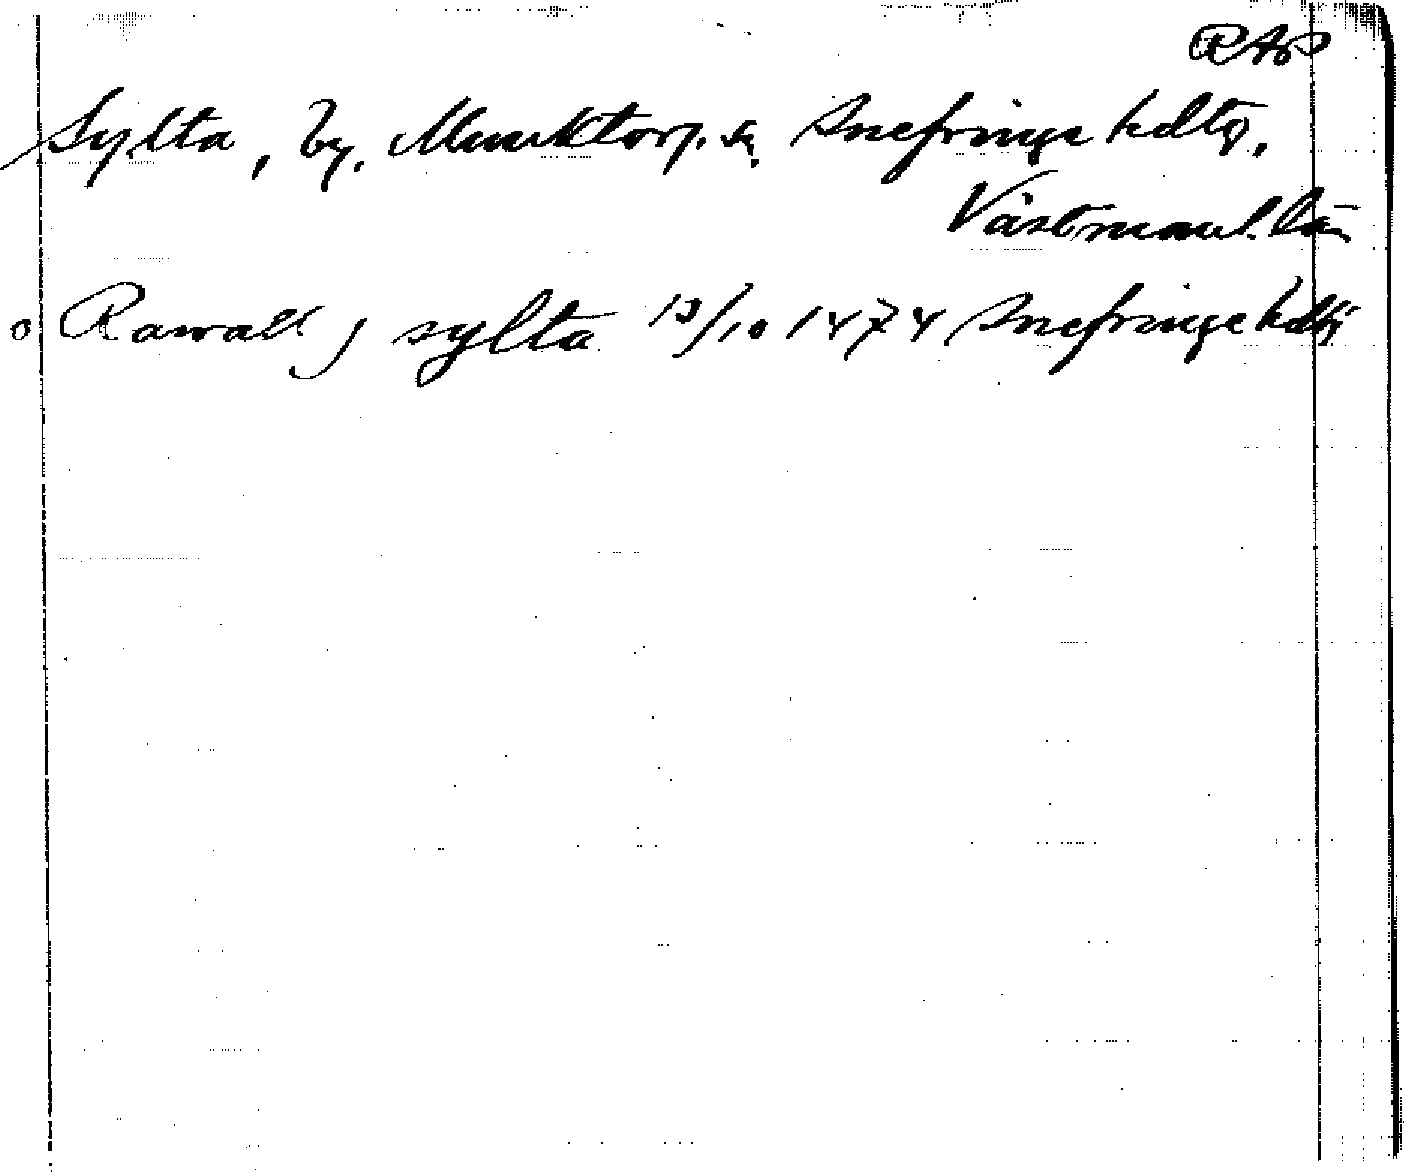 RAP
Sylta, by, Munktorp. sn. Snefringe hdtg.
Västmanl. län
o Rawall j sylta 13/10 1474 Snefringe hdtg